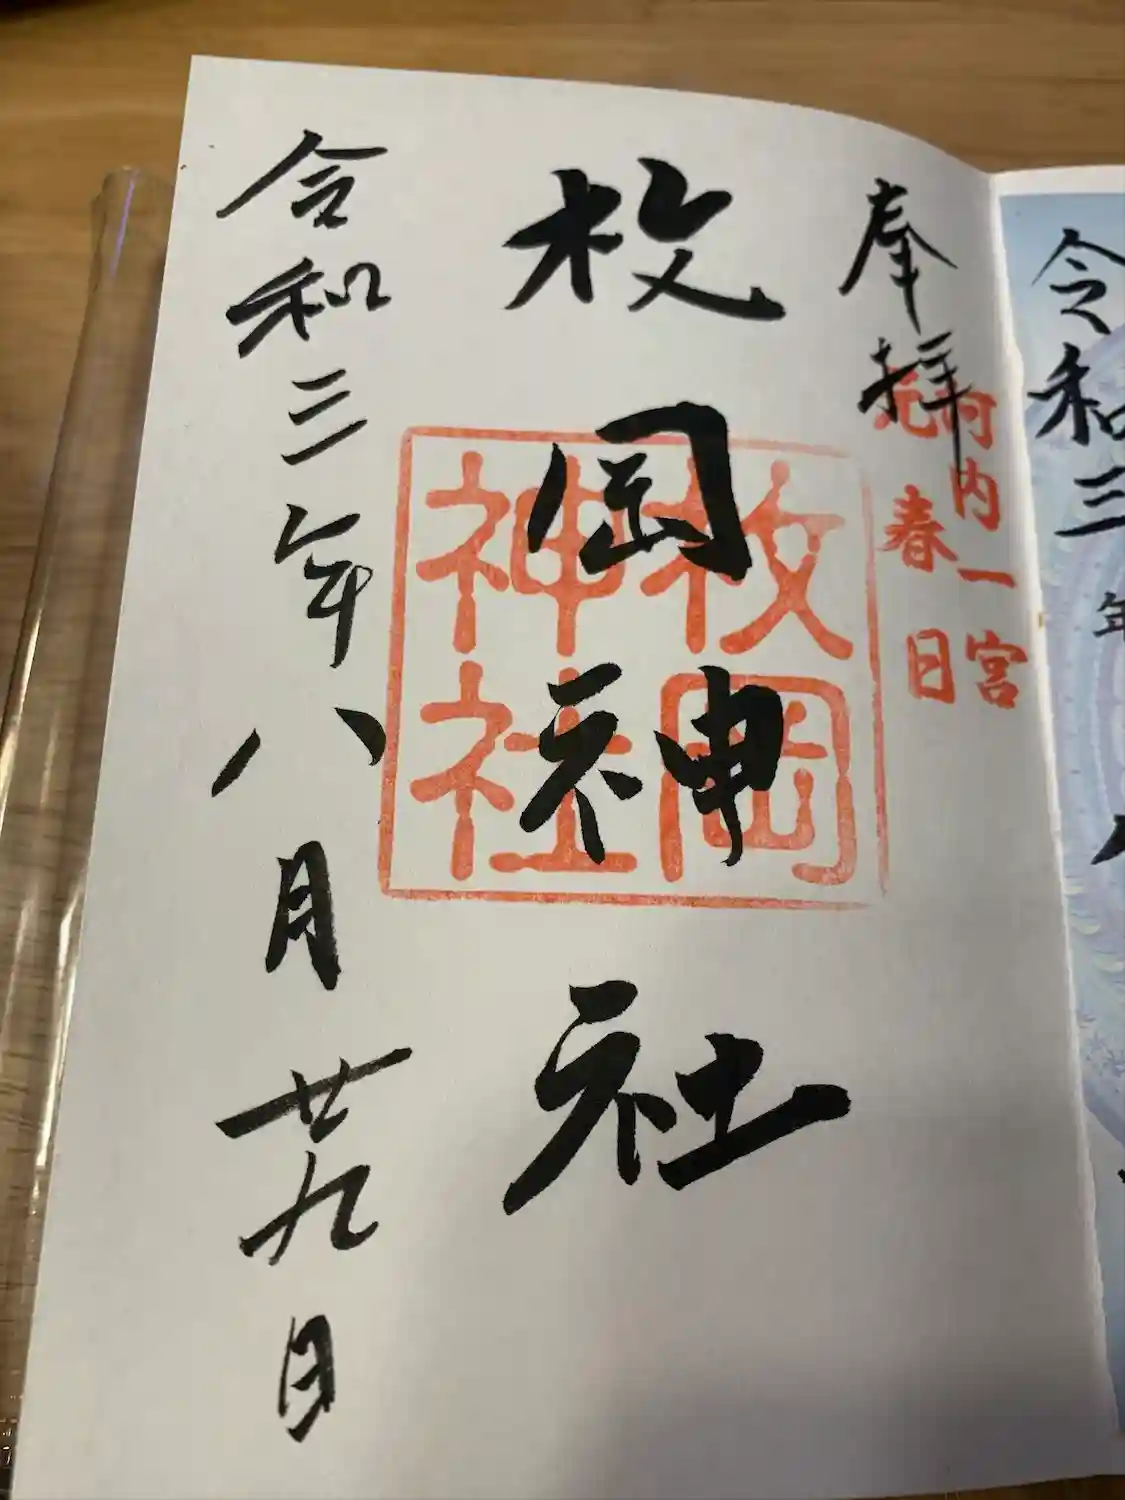 令和三年
奉拝
河内一宮
元春日
枚岡神社
枚岡
神社
令和三年八月廿九日